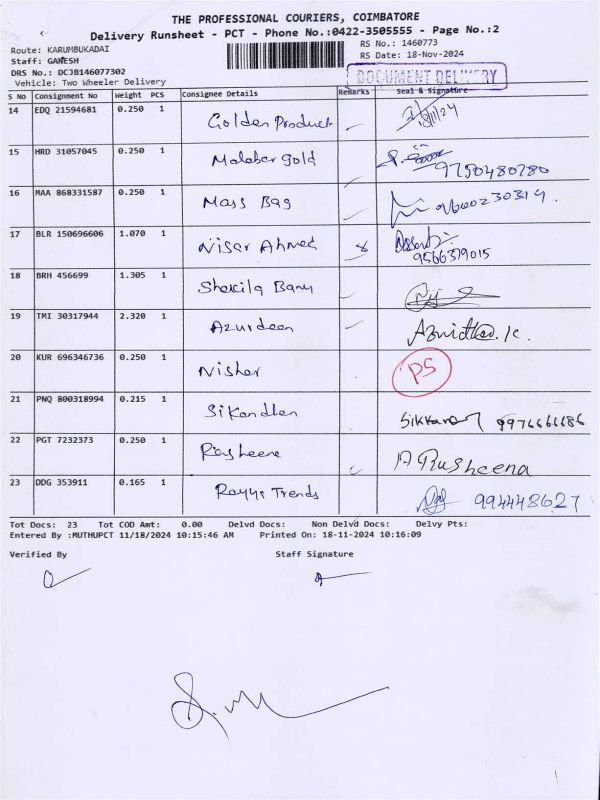 THE PROFESSIONAL COURIERS, COIMBATORE
Delivery Runsheet - PCT - Phone No.:0422-3505555 - Page No.:2
Route: KARUMBUKADAI
RS No.: 1460773
Staff: GANESH
RS Date: 18-Nov-2024
DRS No.: DCJB146077302
Vehicle: Two Wheeler Delivery
DOCUMENT DELIVERY
S No Consignment No Weight PCS Consignee Details Remarks Seal & Signature
14 EDQ 21594681 0.250 1 Golden Product 18/11/24
15 HRD 31057045 0.250 1 Malabar gold 9750480780
16 MAA 868331587 0.250 1 Mass Bag 9600230314.
17 BLR 150696606 1.070 1 Nisar Ahmed 8 9566379015
18 BRH 456699 1.305 1 Shakila Banu
19 TMI 30317944 2.320 1 Azurdeen
20 KUR 696346736 0.250 1 Nisher PS
21 PNQ 800318994 0.215 1 Sikandhan 9976666686
22 PGT 7232373 0.250 1 Rasheena A Rusheena
23 DDG 353911 0.165 1 Rayys Trends 994448627
Tot Docs: 23 Tot COD Amt: 0.00 Delvd Docs: Non Delvd Docs: Delvy Pts:
Entered By :MUTHUPCT 11/18/2024 10:15:46 AM Printed On: 18-11-2024 10:16:09
Verified By Staff Signature